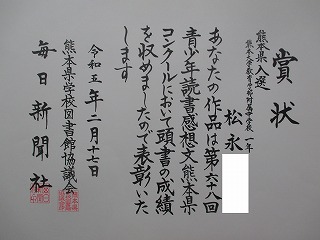 賞状
熊本県入選
熊本大学教育学部附属中学校一年
松永
あなたの作品は第六十八回
青少年読書感想文熊本県
コンクールにおいて頭書の成績
を収めましたので表彰いた
します
令和五年二月十七日
熊本県学校図書館協議会
毎日新聞社